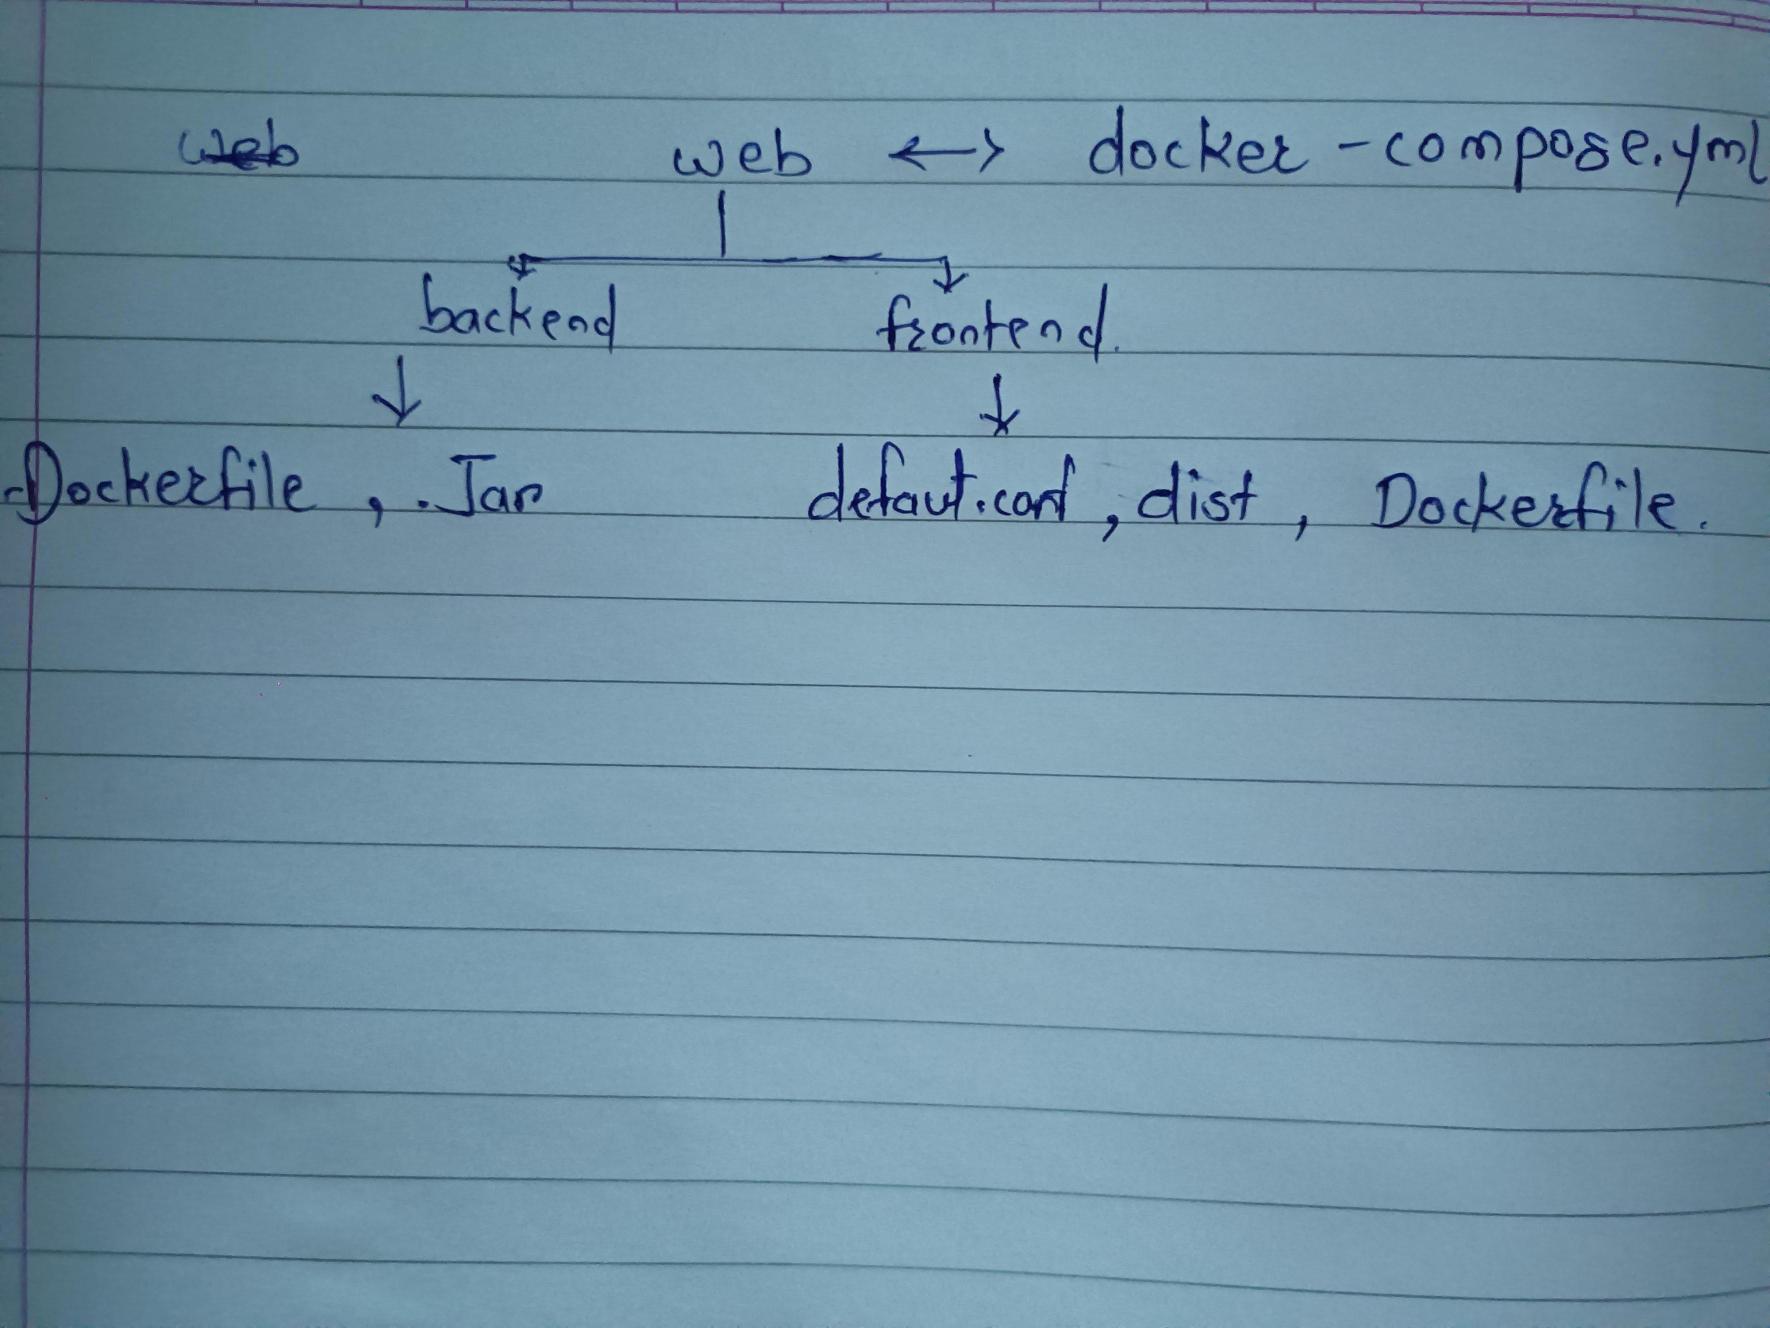 web web <-> docker-compose.yml
backend frontend.
Dockerfile, .Jar defaut.conf, dist, Dockerfile.